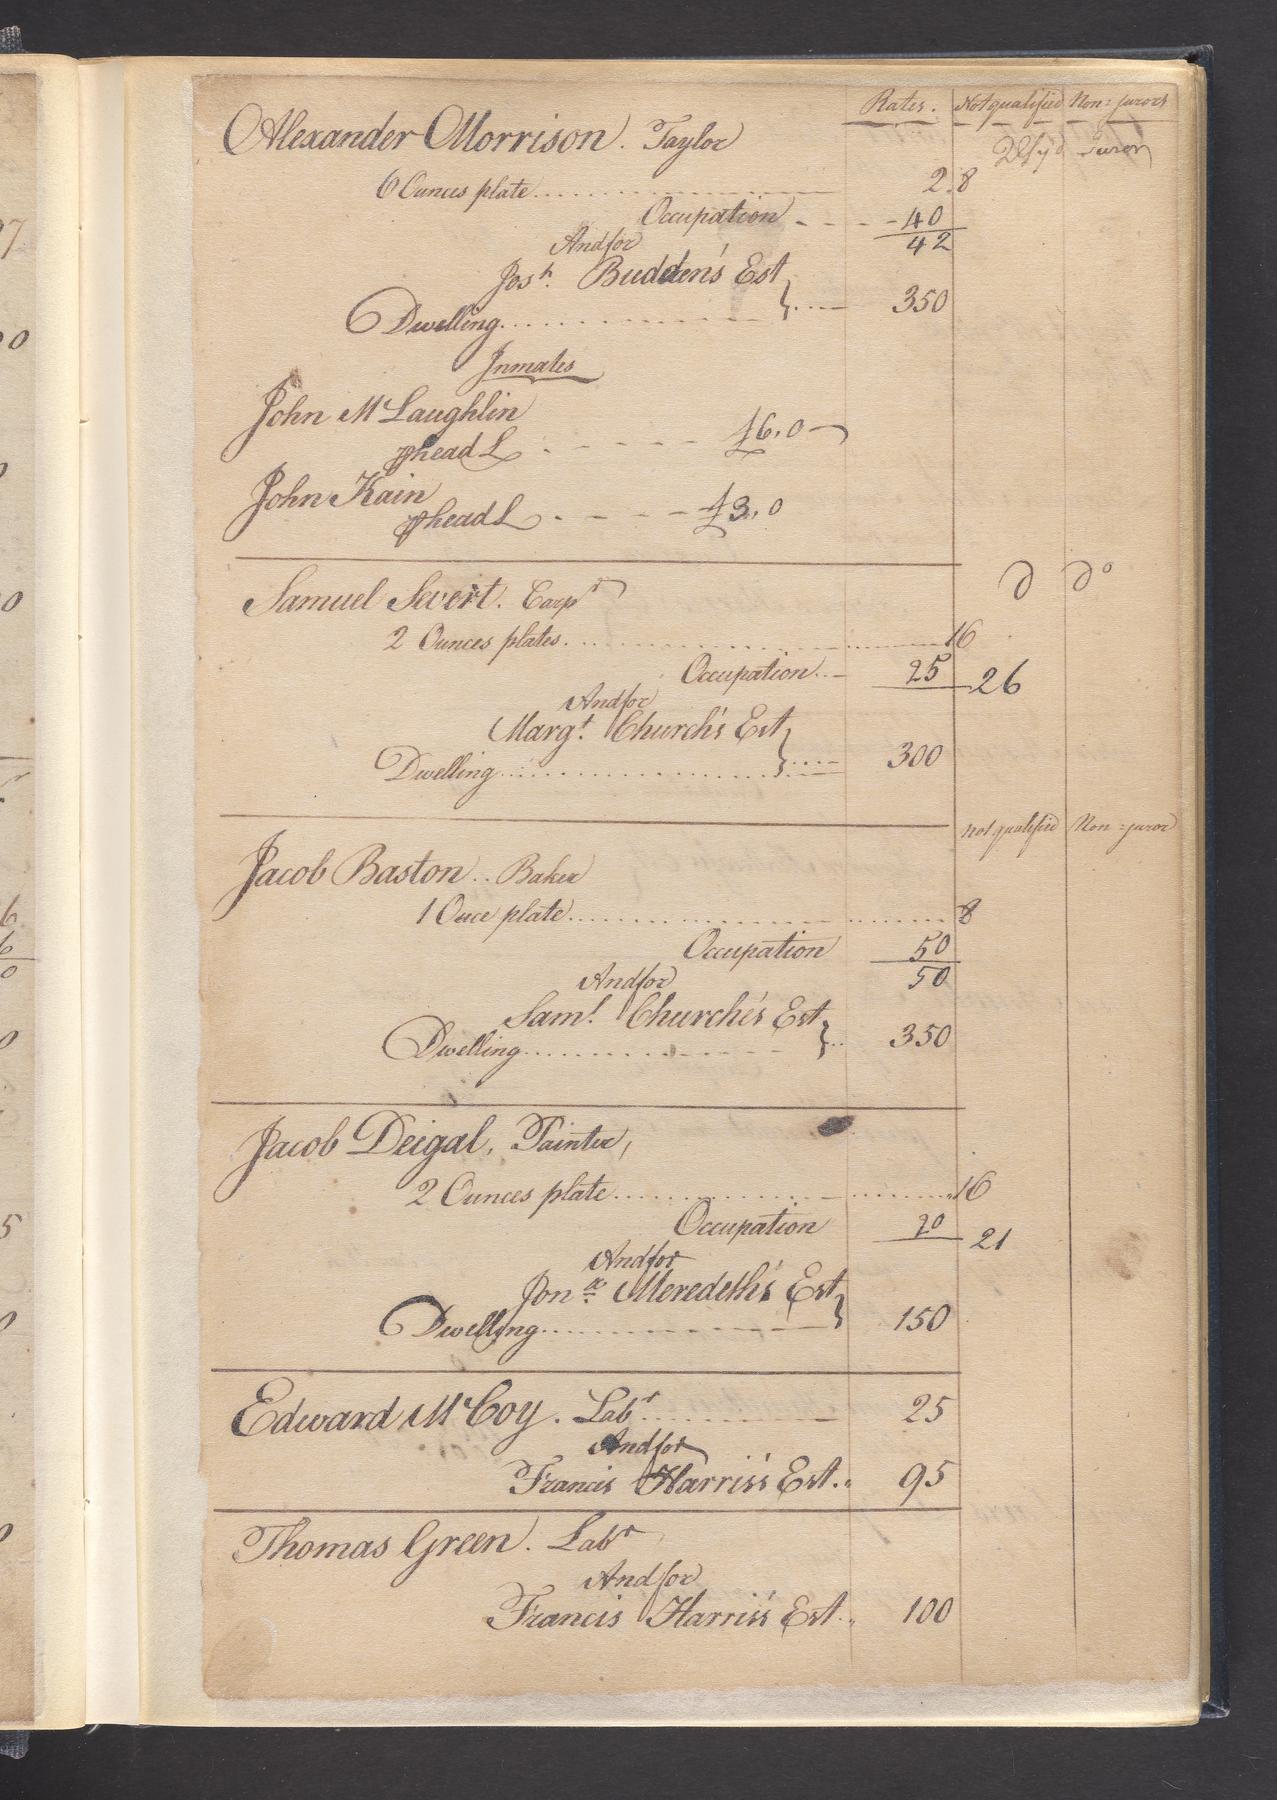 Rates. Not qualified Non=jurors
Alexander Morrison. Taylor
Juror
6 Ounces plate 2.8
Occupation 40
42
And for
Josh. Budden's Est
Dwelling 350
Inmates
John McLaughlin
℔ head L £6.0
John Kain
℔ head L £3.0
Samuel Severt. Carpr D Do
2 Ounces plates 16
Occupation 25 26
And for
Margt. Church's Est
Dwelling 300
Not qualified Non=juror
Jacob Baston .. Baker
1 Ouce plate 8
Occupation 50
50
And for
Saml. Churche's Est
Dwelling 350
Jacob Deigal, Painter,
2 Ounces plate 16
Occupation 20 21
And for
Jona. Meredeth's Est
Dwelling 150
Edward McCoy. Labr 25
And for
Francis Harris's Est. 95
Thomas Green. Labr
And for
Francis Harris's Est. 100
7
0
0
6
6
0
5